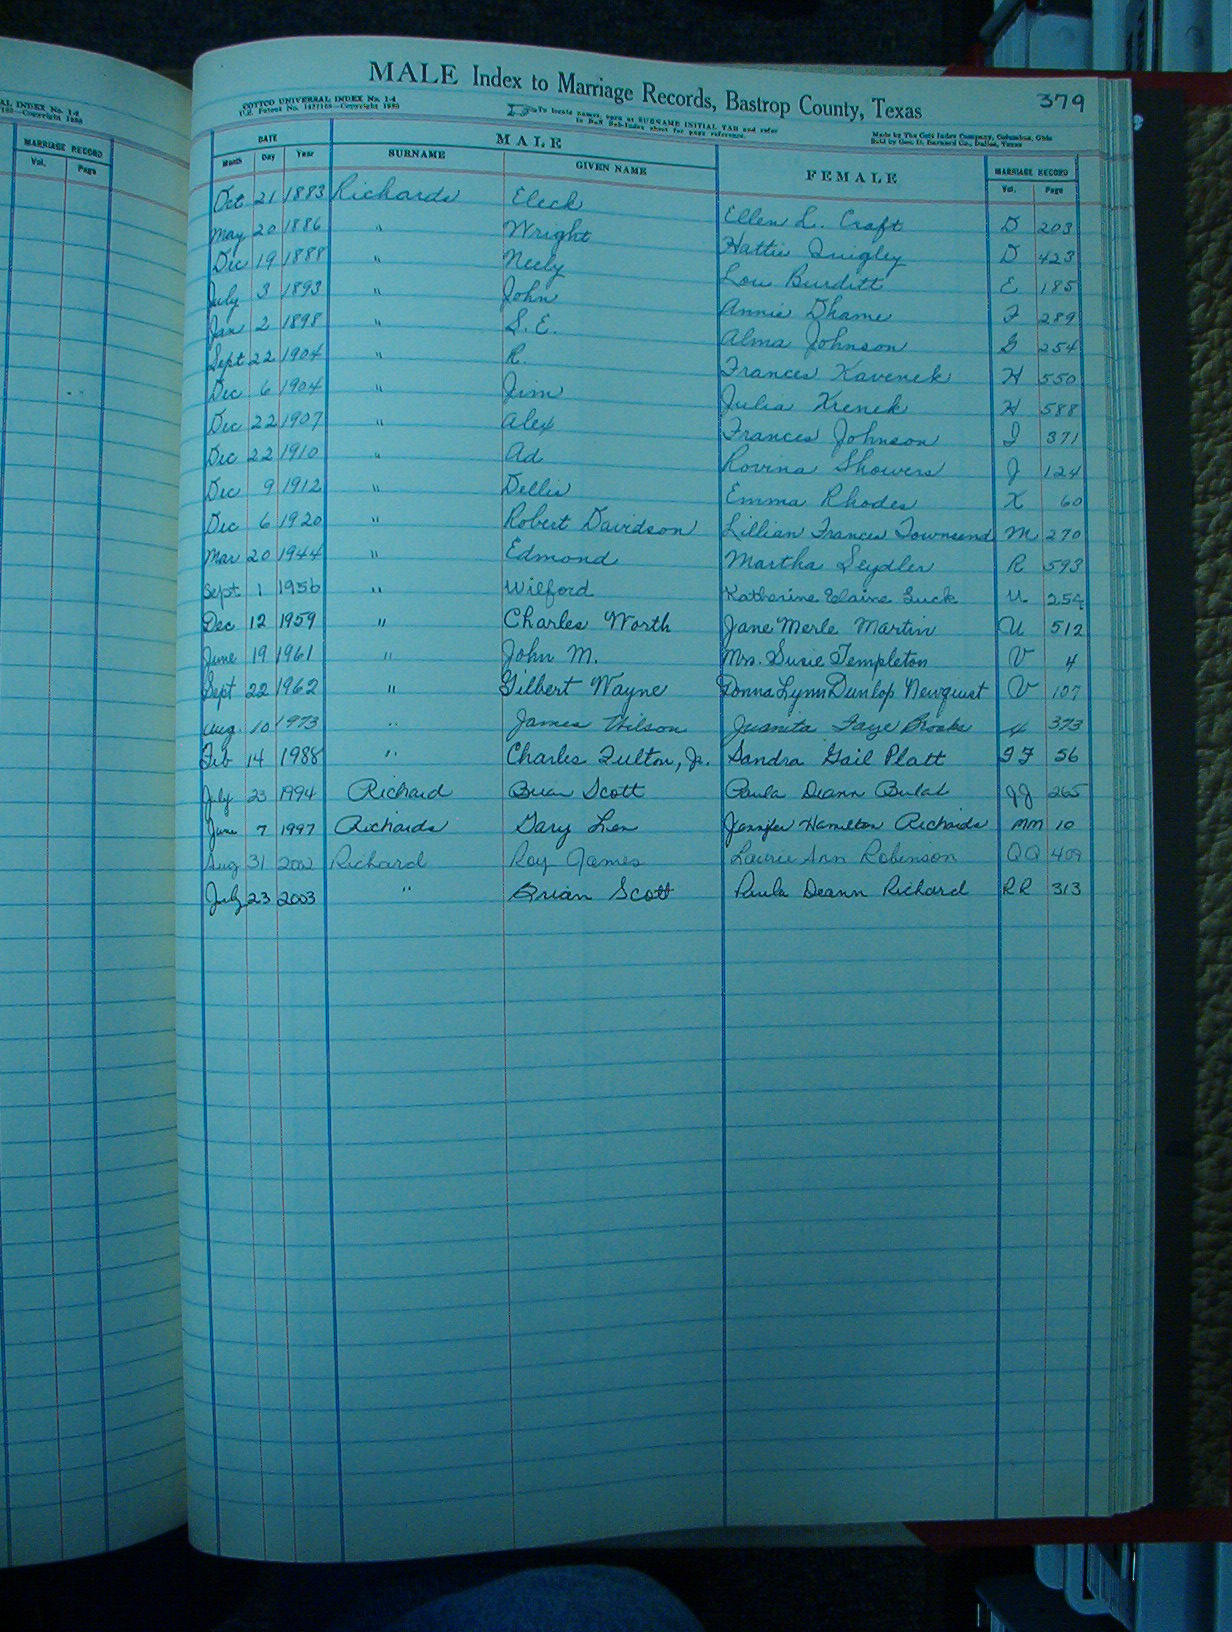 AL INDEX No. 1-4
MARRIAGE RECORD
Vol. Page
MALE Index to Marriage Records, Bastrop County, Texas 379
COTTCO UNIVERSAL INDEX No. 1-4
U.S. Patent No. Copyright
To locate names, turn at SURNAME INITIAL TAB and refer
to Sub-Index sheet for page reference.
Made by The Cott Index Company, Columbus, Ohio
Sold by Geo. D. Barnard Co., Dallas, Texas
DATE MALE FEMALE MARRIAGE RECORD
Month Day Year SURNAME GIVEN NAME Vol. Page
Oct 21 1883 Richards Eleck Ellen L. Craft D 203
May 20 1886 " Wright Hattie Quigley D 423
Dec 19 1888 " Neely Lou Burditt E 185
July 3 1893 " John Annie Dhame F 289
Jan 2 1898 " S. E. Alma Johnson G 254
Sept 22 1904 " R. Frances Kavenek H 550
Dec 6 1904 " Jim Julia Krenek H 588
Dec 22 1907 " Alex Frances Johnson I 371
Dec 22 1910 " Ad Rovina Showers J 124
Dec 9 1912 " Dellis Emma Rhodes K 60
Dec 6 1920 " Robert Davidson Lillian Frances Townsend M 270
Mar 20 1944 " Edmond Martha Seydler R 593
Sept 1 1956 " Wilford Katherine Elaine Luck U 254
Dec 12 1959 " Charles Worth Jane Merle Martin U 512
June 19 1961 " John M. Mrs. Susie Templeton V 4
Sept 22 1962 " Gilbert Wayne Donna Lynn Dunlop Newquist V 107
Aug 10 1973 " James Wilson Juanita Faye Brooks 373
Feb 14 1988 " Charles Fulton, Jr. Sandra Gail Platt FF 56
July 23 1994 Richard Brian Scott Paula Deann Bulat JJ 265
June 7 1997 Richards Gary Len Jennifer Hamilton Richards MM 10
Aug 31 2002 Richard Roy James Laurie Ann Robinson QQ 409
July 23 2003 " Brian Scott Paula Deann Richard RR 313